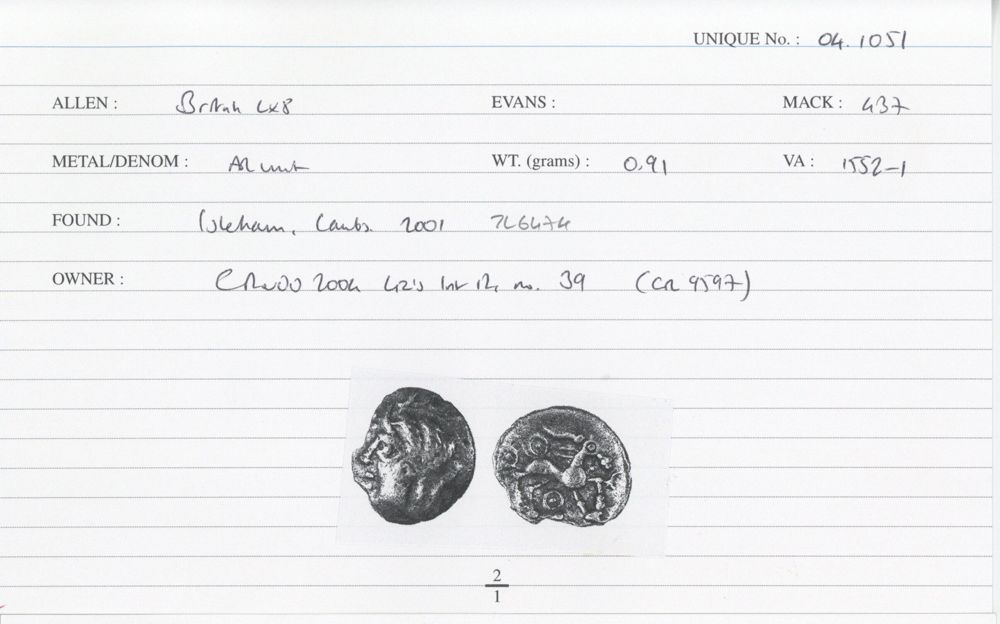 UNIQUE No. : 04.1051
ALLEN : British LX8 EVANS : MACK : 437
METAL/DENOM : AR unit WT. (grams) : 0.91 VA : 1552-1
FOUND : Isleham, Cambs. 2001 TL6474
OWNER : 2004 no. 39 (CR 9597)
2
1